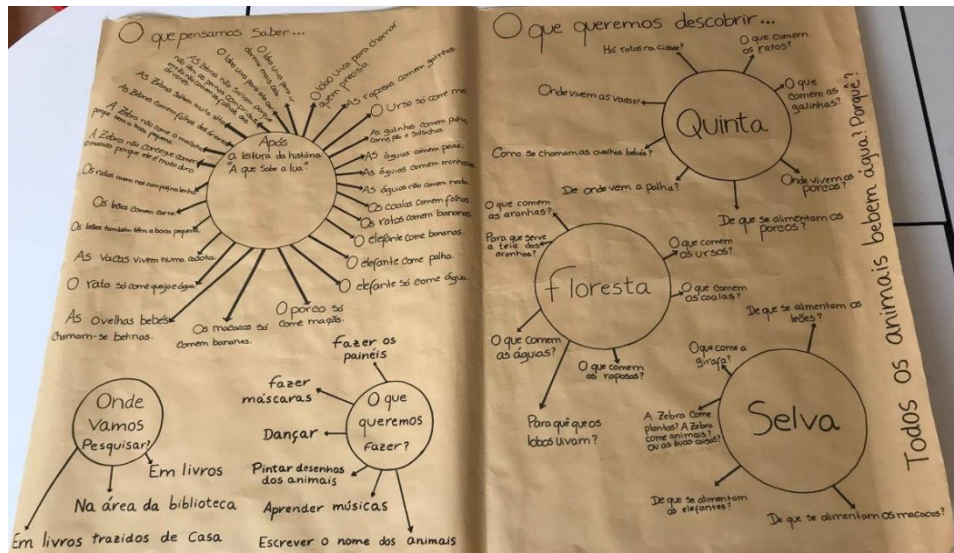 O que pensamos saber...
Após
a leitura da história:
"A que sabe a lua"
O lobo uiva para chamar
quem precisa.
As raposas comem galinhas.
O Urso só come mel
As galinhas comem palha,
carne, pão e salsichas.
As águias comem peixe.
As águias comem minhocas
As águias não comem nada.
Os coalas comem folhas
Os ratos comem bananas.
O elefante come bananas.
O elefante come palha.
O elefante só come água.
O porco só
come maçãs.
Os macacos só
comem bananas.
As ovelhas bebés
chamam-se belinas.
O rato só come queijo e água.
As vacas vivem numa casota.
Os leões também têm a boca pequena.
Os leões comem carne.
Os ratos vivem nos
A Zebra não consegue comer
o macaco porque ele é muito duro.
A Zebra não come o macaco
porque tem a boca pequena.
As Zebras comem folhas das árvores.
As Zebras saltam muito alto.
As Zebras não saltam porque
não têm as pernas compridas
Onde
Vamos
Pesquisar?
Em livros
Na área da biblioteca
Em livros trazidos de Casa
O que
queremos
Fazer?
Fazer os
painéis
Fazer
máscaras
Dançar
Pintar desenhos
dos animais
Aprender músicas
Escrever o nome dos animais
O que queremos descobrir...
Quinta
Há ratos na cidade?
O que comem
os ratos?
O que
comem as
galinhas?
Onde vivem as vacas?
Como se chamam as ovelhas bebés?
De onde vem a palha?
Onde vivem os
porcos?
De que se alimentam os
porcos?
Floresta
O que comem
as aranhas?
Para que serve
a teia das
aranhas?
O que comem
os ursos?
O que comem
os coalas?
O que comem
as águias?
O que comem
as raposas?
Para quê que os
lobos uivam?
Selva
De que se alimentam os
leões?
O que come a
girafa?
A Zebra come
plantas? A Zebra
come animais?
ou as duas coisas?
De que se alimentam
os elefantes?
De que se alimentam os macacos?
Todos os animais bebem água? Porquê?